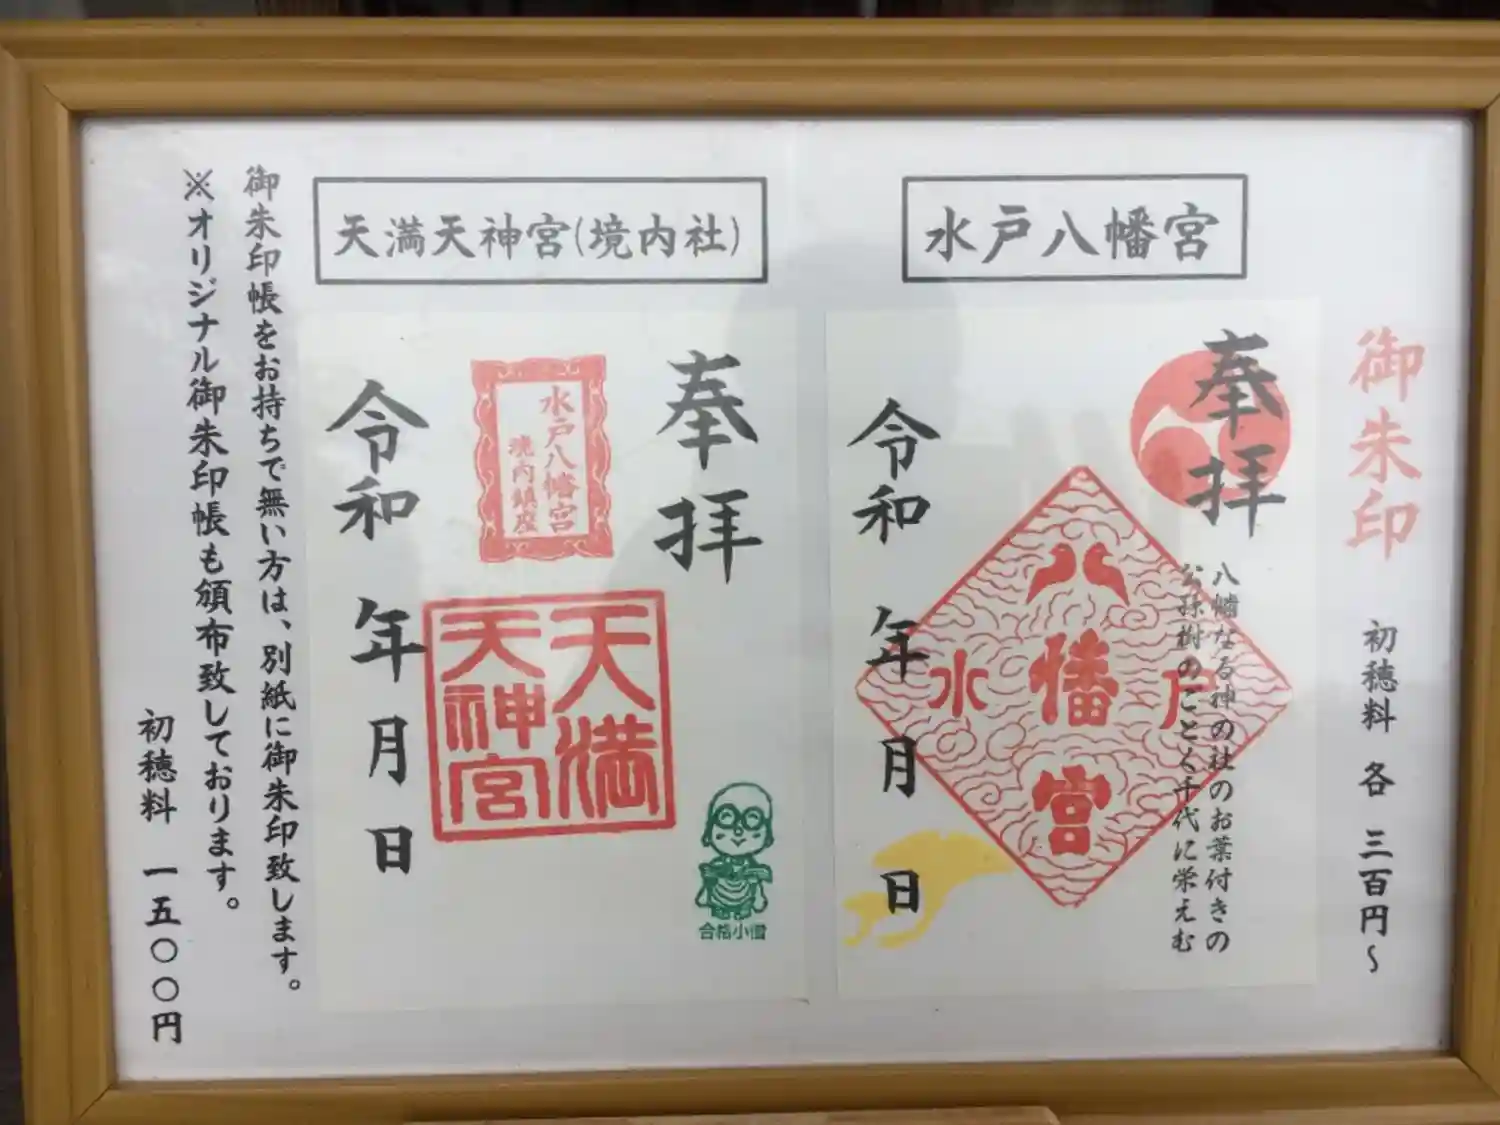 御朱印
初穂料 各 三百円~
水戸八幡宮
奉拝
八幡なる神の社のお葉付きの
公孫樹のごとく千代に栄えむ
八幡宮
水戸
令和 年 月 日
天満天神宮(境内社)
奉拝
水戸八幡宮
境内鎮座
天満
天神宮
合格小僧
令和 年 月 日
御朱印帳をお持ちで無い方は、別紙に御朱印致します。
※オリジナル御朱印帳も頒布致しております。
初穂料 一五〇〇円